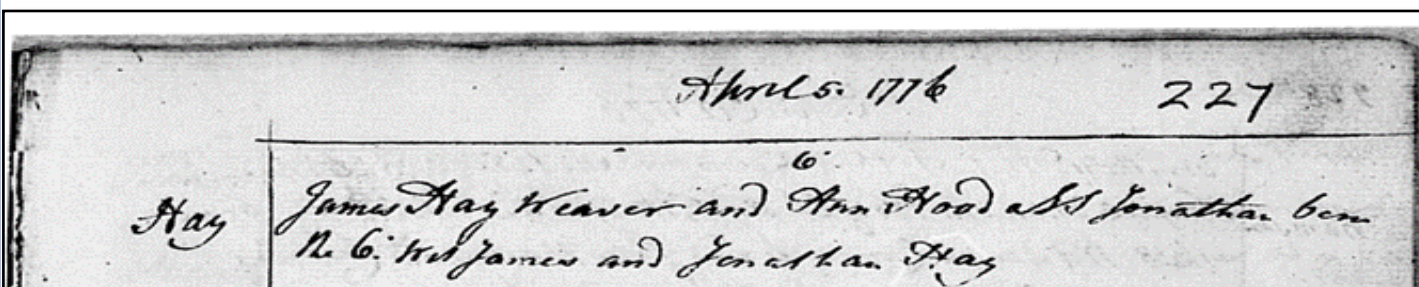 April 5. 1776 227
6.
Hay James Hay Weaver and Ann Hood a S J Jonathan born
the 6. Wit James and Jonathan Hay